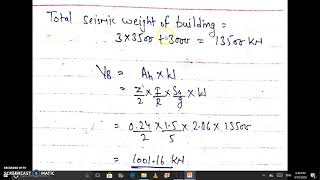 Total seismic weight of building =
3 x 3500 + 3000 = 13500 KN
VB = Ah x W
= Z/2 x I/R x Sa/g x W
= 0.24/2 x 1.5/5 x 2.06 x 13500
= 1001.16 KN
SCREENCAST MATIC